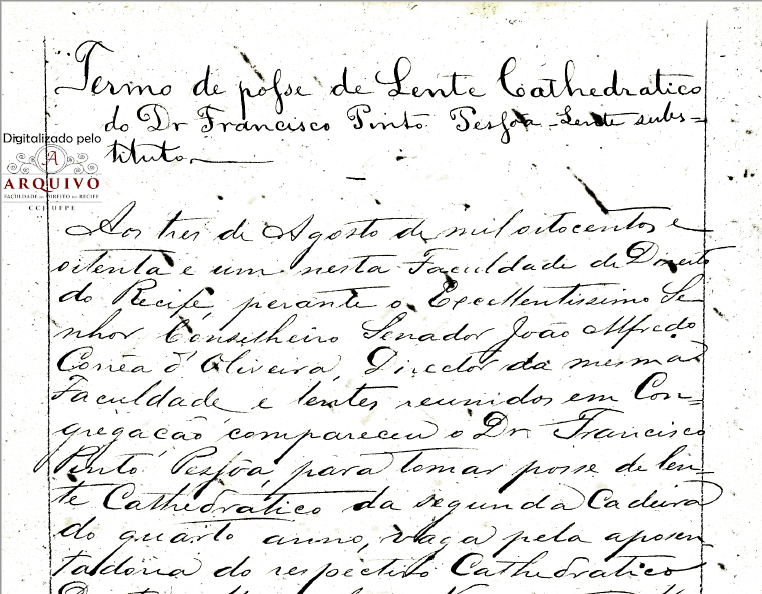 Termo de posse de Lente Cathedratico
do Dr Francisco Pinto Pessôa Lente subs=
tituto.
Digitalizado pelo
A
ARQUIVO
FACULDADE DE DIREITO DO RECIFE
CCJ-UFPE
Aos tres de Agosto de mil oitocentos e
oitenta e um nesta Faculdade de Direito
do Recife, perante o Excellentissimo Se
nhor Conselheiro Senador João Alfredo
Corrêa d'Oliveira, Director da mesma
Faculdade e lentes reunidos em Con=
gregação, compareceu o Dr. Francisco
Pinto Pessôa, para tomar posse de len=
te Cathedratico da segunda Cadeira
do quarto anno, vaga pela aposen
tadoria do respectivo Cathedratico